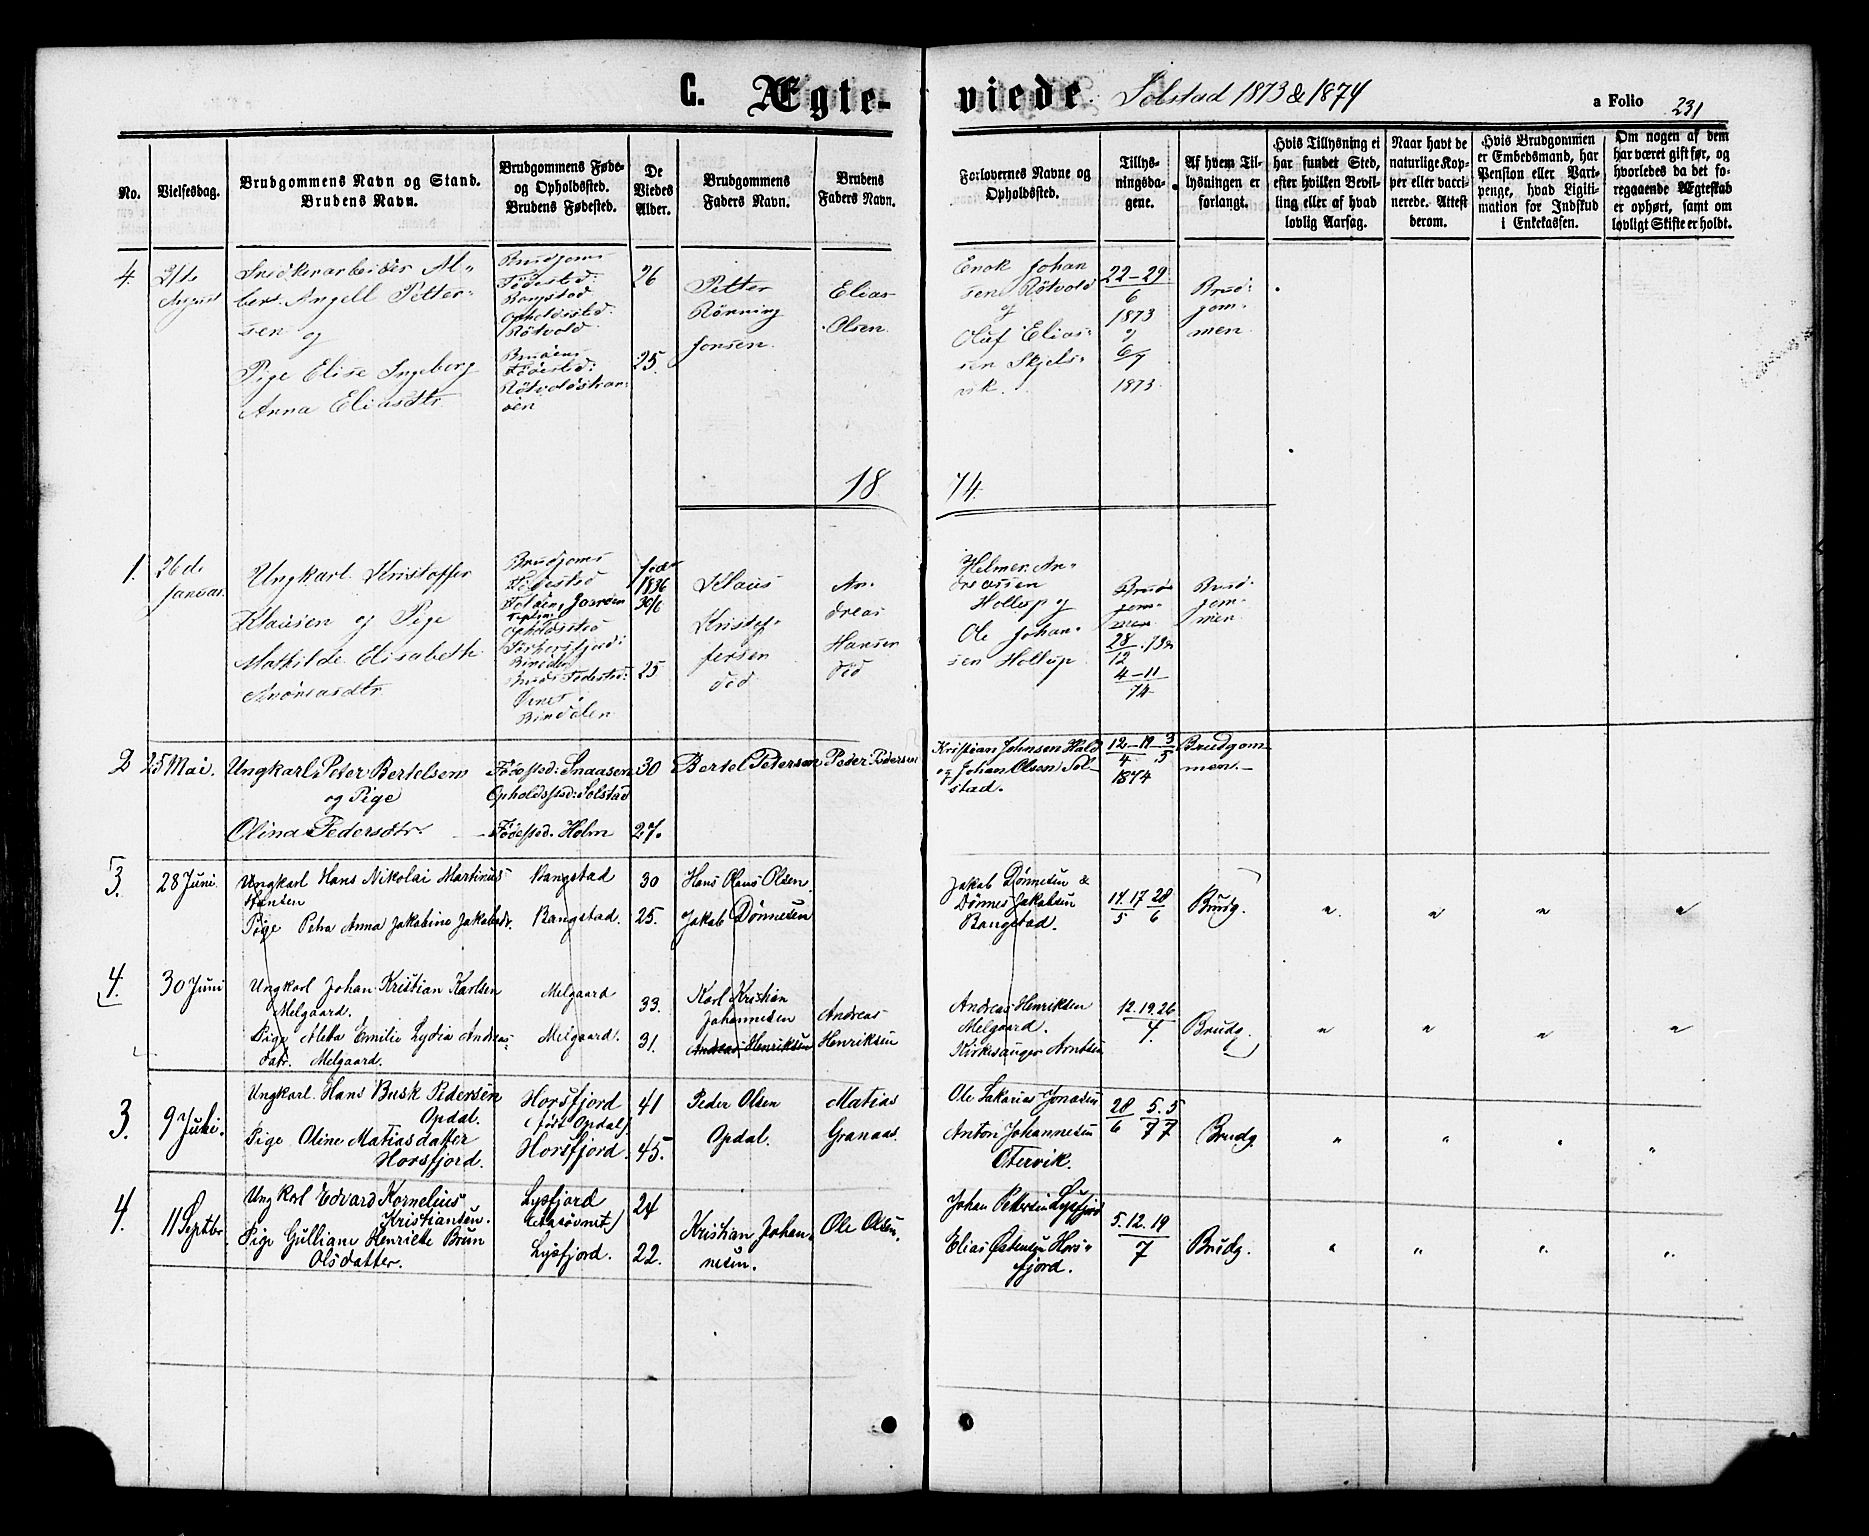 C. Ægte-
viede.
Solstad 1873 & 1874
a Folio 231
No.
Vielsesdag.
Brudgommens Navn og Stand.
Brudens Navn.
Brudgommens Føde-
og Opholdssted.
Brudens Fødested.
De
Viedes
Alder.
Brudgommens
Faders Navn.
Brudens
Faders Navn.
Forlovernes Navne og
Opholdssted.
Tillys-
ningsda-
gene.
Af hvem Til-
lysningen er
forlangt.
Hvis Tillysning ei
har fundet Sted,
efter hvilken Bevil-
ling eller af hvad
lovlig Aarsag.
Naar havt de
naturlige Kop-
per eller vacci-
nerede. Attest
derom.
Hvis Brudgommen
er Embedsmand, har
Pension eller Vart-
penge, hvad Ligiti-
mation for Indskud
i Enkekassen.
Om nogen af dem
har været gift før, og
hvorledes da det fo-
regaaende Ægteskab
er ophørt, samt om
lovligt Skifte er holdt.
4.
August
Snedkerarbeider Al-
bert Angell Petter-
sen og
Pige Elise Ingeborg
Anna Eliasdtr.
Brudgoms
Fødested:
Bangstad
Opholdssted:
Røtvold.
Brudens
Fødested:
26
25.
Petter
Rönning
Jonsen.
Elias
Olsen.
Enok Johan
sen Røtvold
og
Oluf Elias-
sen Skjels-
vik.
22-29
6
1873
og
6/7
1873.
Brud-
gom-
men.
18
74.
1.
26de
Januar.
Ungkarl Kristoffer
Klausen og Pige
Mathilde Elisabeth
Andreasdtr
Brudgoms
Fødested
Opholdssted
Bindalen
Fødested:
Bindalen
født
1836
30/6
25
Klaus
Kristof-
fersen
død
An-
dreas
Hansen
død
Helmer An-
dreassen
Hollup og
Ole Johan-
sen Hollup.
Brud-
gom-
men
28 . 73
12
4-11
74
Brud-
gom-
men
2
25 Mai.
Ungkarl Peter Bertelsen
og Pige
Olina Pedersdtr.
Fødested: Snaasen
Opholdssted: Solstad
Fødested. Holm
30
27.
Bertel Petersen
Peder Pedersen
Kristian Johnsen Hald
og Johan Olsen Sol-
stad.
12-19 3
4 5
1874
Brudgom
men.
3.
28 Juni
Ungkarl Hans Nikolai Martinus
Hansen
Pige Petra Anna Jakobine Jakobsdr.
Vangstad
Bangstad.
30
25.
Hans Klaus Olsen
Jakob Dønnesen
Jakob Dønnesen &
Dønnes Jakobsen
Bangstad.
14. 17 28
5 6
Brudg.
" " " "
4.
30 Juni
Ungkarl Johan Kristian Karlsen
Melgaard.
Pige Aleta Emilie Lydia Andreas-
datr. Melgaard.
Melgaard
Melgaard.
33.
31.
Karl Kristian
Johannesen
Andreas Henriksen
Andreas
Henriksen
Andreas Henriksen
Melgaard.
Kirkesanger Arntsen
12. 19. 26
4.
Brudg.
" " " "
3.
9 Juli.
Ungkarl. Hans Busk Pedersen
Opdal.
Pige Oline Matiasdatter
Horsfjord.
Horsfjord
(født Opdal)
Horsfjord.
41
45.
Peder Olsen
Opdal.
Matias
Granaas.
Ole Sakarias Jonasen
Anton Johannesen
Otervik.
28 5. 5
6 7 7
Brudg.
" " " "
4.
11 Septbr.
Ungkarl Edvard Kornelius
Kristiansen.
Pige Gulliane Henriette Brun
Olsdatter.
Lysfjord
Lysfjord.
24
22.
Kristian Johan-
nesen.
Ole Olsen.
Johan Pettersen Lysfjord
Elias Østensen Hors-
fjord.
5. 12. 19
7
Brudg.
" " " "